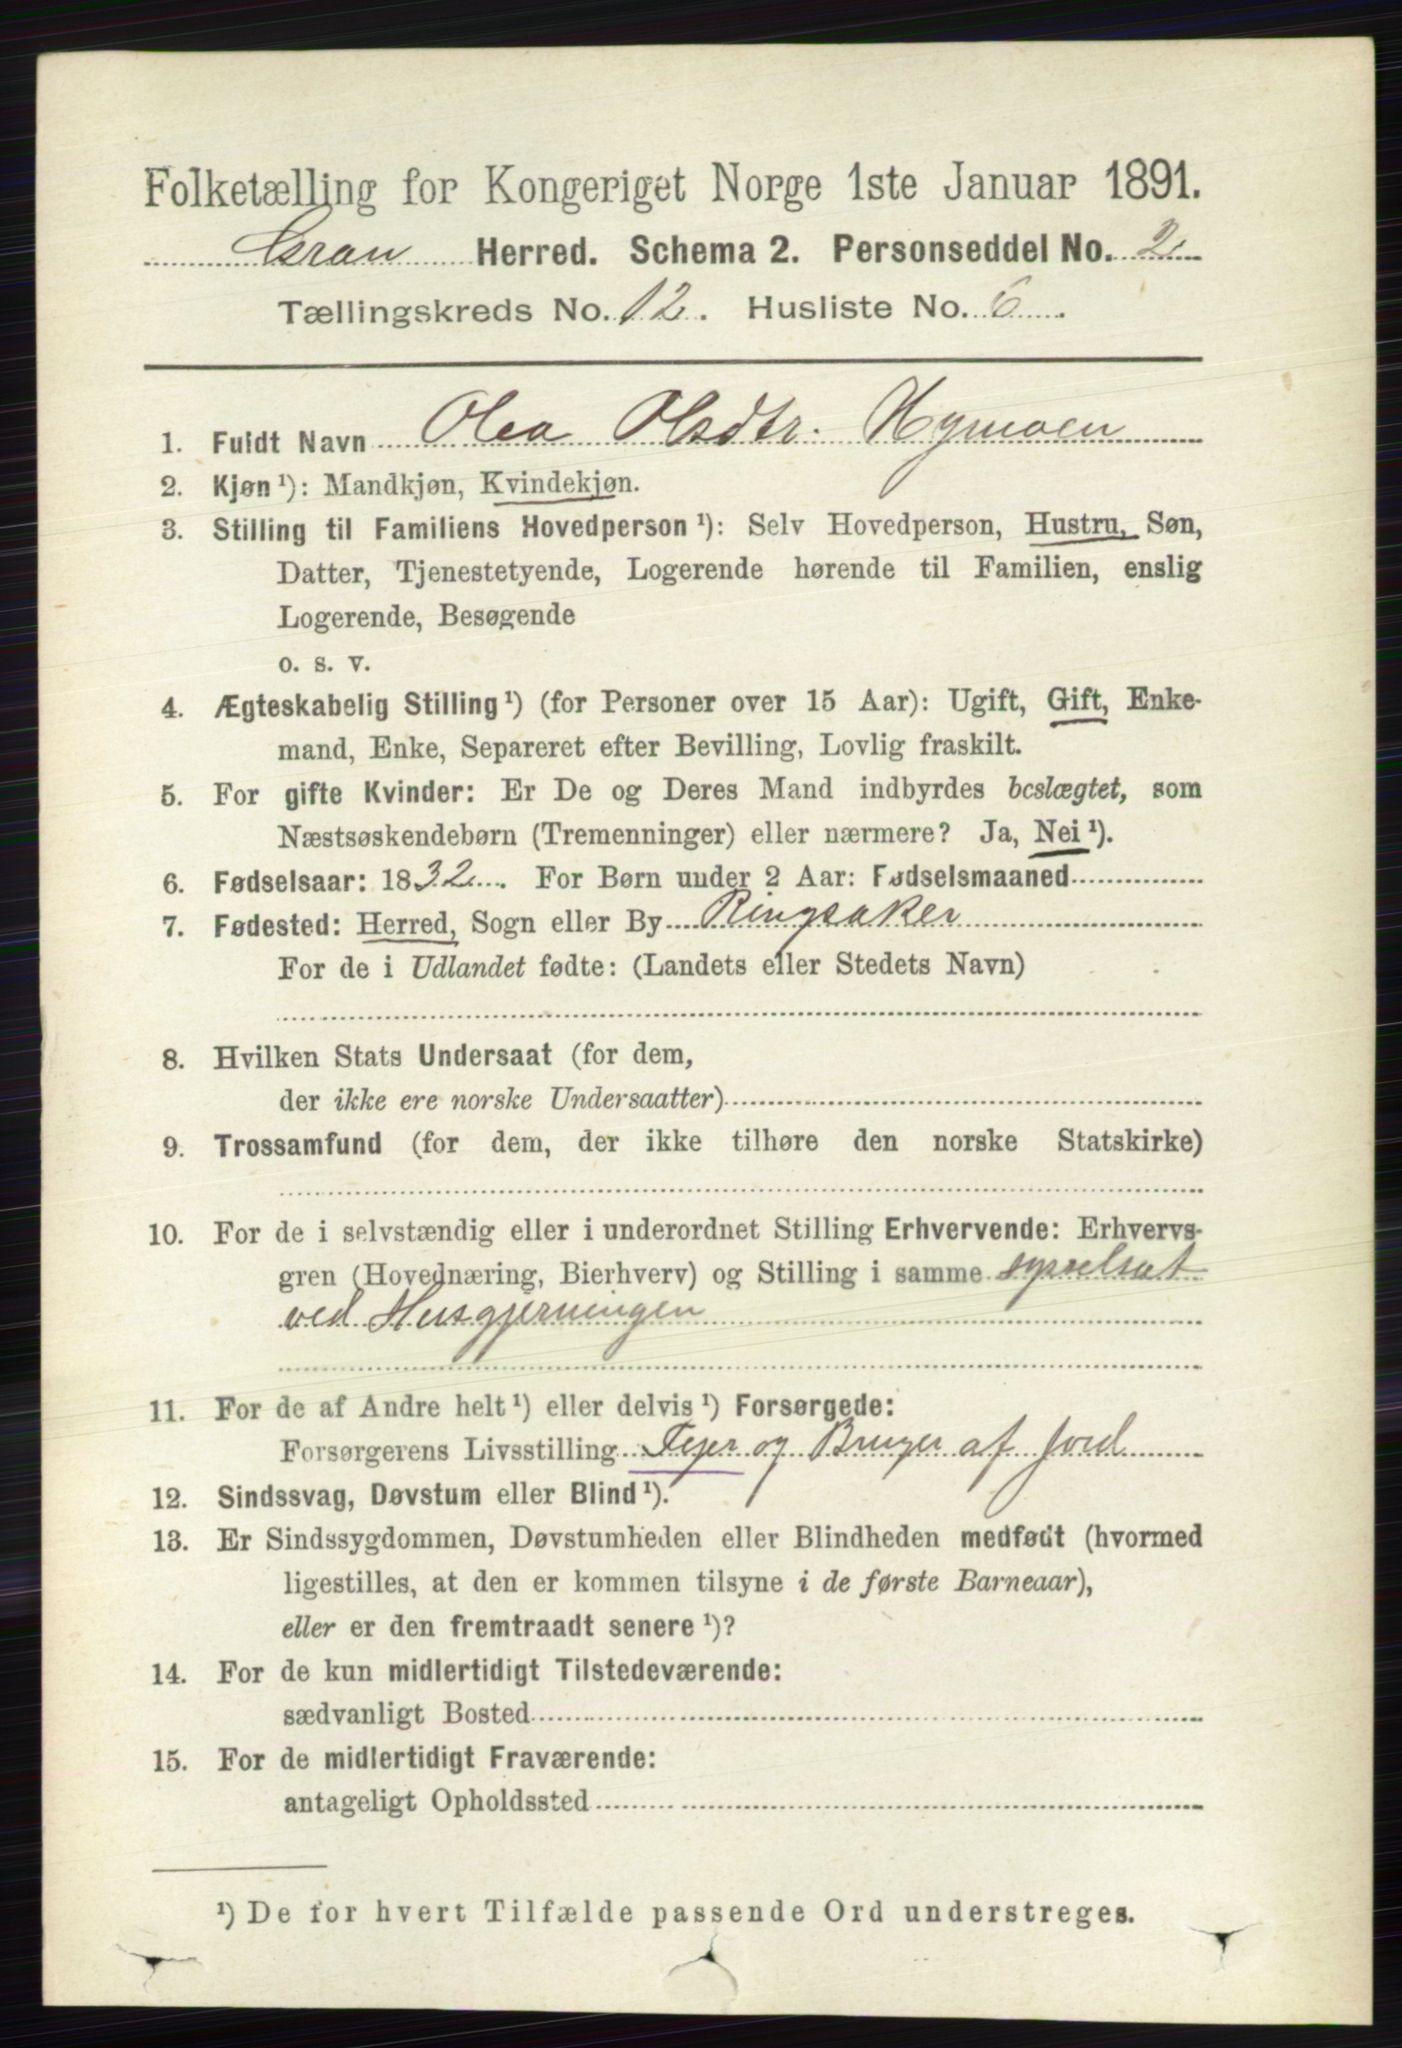 Folketælling for Kongeriget Norge 1ste Januar 1891.
Gran Herred. Schema 2. Personseddel No. 2.
Tællingskreds No. 12. Husliste No. 6.
1. Fuldt Navn Olea Olsdtr. Hymoen
2. Kjøn ¹): Mandkjøn, Kvindekjøn.
3. Stilling til Familiens Hovedperson ¹): Selv Hovedperson, Hustru, Søn,
Datter, Tjenestetyende, Logerende hørende til Familien, enslig
Logerende, Besøgende
o. s. v.
4. Ægteskabelig Stilling ¹) (for Personer over 15 Aar): Ugift, Gift, Enke-
mand, Enke, Separeret efter Bevilling, Lovlig fraskilt.
5. For gifte Kvinder: Er De og Deres Mand indbyrdes beslægtet, som
Næstsøskendebørn (Tremenninger) eller nærmere? Ja, Nei ¹).
6. Fødselsaar: 1832. For Børn under 2 Aar: Fødselsmaaned
7. Fødested: Herred, Sogn eller By Ringsaker
For de i Udlandet fødte: (Landets eller Stedets Navn)
8. Hvilken Stats Undersaat (for dem,
der ikke ere norske Undersaatter)
9. Trossamfund (for dem, der ikke tilhøre den norske Statskirke)
10. For de i selvstændig eller i underordnet Stilling Erhvervende: Erhvervs-
gren (Hovednæring, Bierhverv) og Stilling i samme sysselsat
ved Husgjerningen
11. For de af Andre helt ¹) eller delvis ¹) Forsørgede:
Forsørgerens Livsstilling Fejer og Bruger af Jord
12. Sindssvag, Døvstum eller Blind ¹).
13. Er Sindssygdommen, Døvstumheden eller Blindheden medfødt (hvormed
ligestilles, at den er kommen tilsyne i de første Barneaar),
eller er den fremtraadt senere ¹)?
14. For de kun midlertidigt Tilstedeværende:
sædvanligt Bosted
15. For de midlertidigt Fraværende:
antageligt Opholdssted
¹) De for hvert Tilfælde passende Ord understreges.